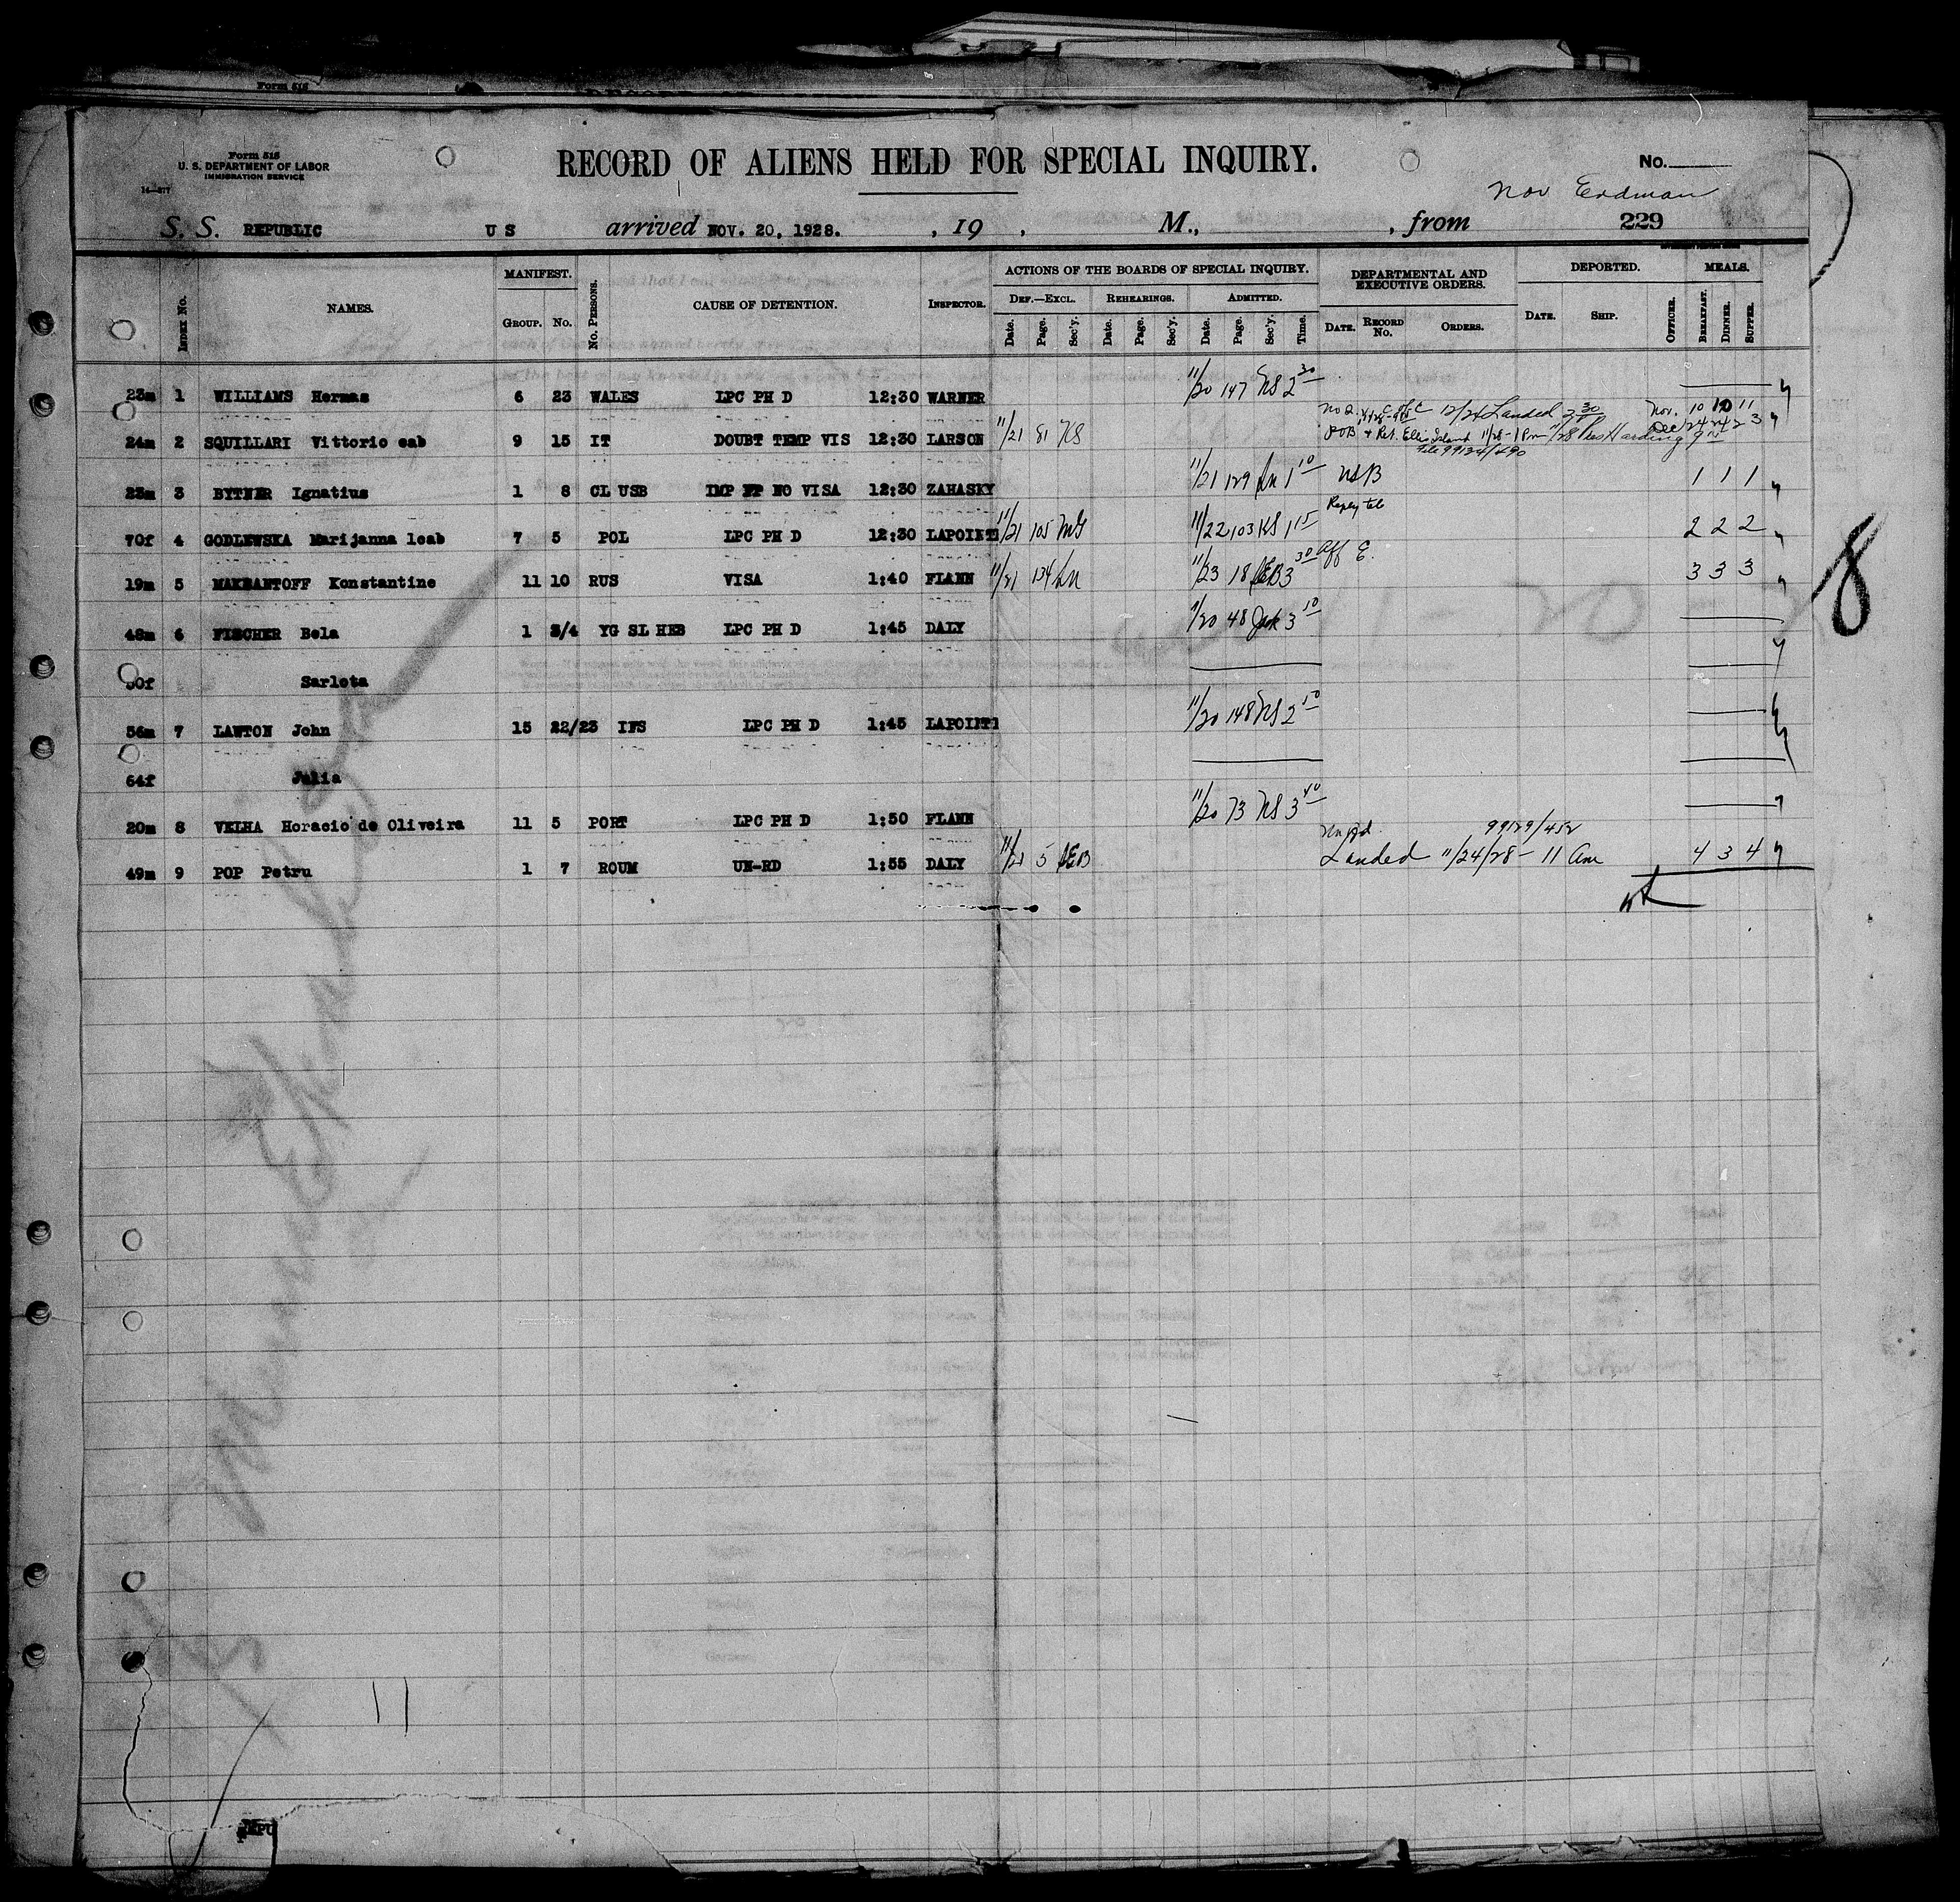 Form 518
Form 518
U. S. DEPARTMENT OF LABOR
IMMIGRATION SERVICE
14—277
RECORD OF ALIENS HELD FOR SPECIAL INQUIRY.
No.
Nov Erdman
S. S. REPUBLIC U S arrived NOV. 20, 1928. , 19 , M., , from 229
INDEX No. NAMES. MANIFEST. GROUP. No. No. PERSONS. CAUSE OF DETENTION. INSPECTOR. ACTIONS OF THE BOARDS OF SPECIAL INQUIRY. DEF.—EXCL. Date. Page. Sec'y. REHEARINGS. Date. Page. Sec'y. ADMITTED. Date. Page. Sec'y. Time. DEPARTMENTAL AND EXECUTIVE ORDERS. DATE. RECORD No. ORDERS. DEPORTED. DATE. SHIP. OFFICER. MEALS. BREAKFAST. DINNER. SUPPER.
23m 1 WILLIAMS Hermas 6 23 WALES LPC PH D 12:30 WARNER 11/20 147 NS 2 30
12/24 Landed 2 30 Nov. 10 10 11
24m 2 SQUILLARI Vittorio cab 9 15 IT DOUBT TEMP VIS 12:30 LARSON 11/21 81 KS Ret. Ellis Island 11/28 - 1 Pm 11/28 Pres Harding Dec 24 24 23
File 99134/490
23m 3 BYTNER Ignatius 1 8 CL USB IMP NO VISA 12:30 ZAHASKY 11/21 129 Ln 1 10 USB 1 1 1
70f 4 GODLEWSKA Marijanna lcab 7 5 POL LPC PH D 12:30 LAPOINTE 11/21 105 11/22 103 KS 1 15 2 2 2
19m 5 MAKRANTOFF Konstantine 11 10 RUS VISA 1:40 FLANN 11/21 134 Ln 11/23 18 JEB 3 30 Aff E. 3 3 3
48m 6 FISCHER Bela 1 3/4 YG SL HEB LPC PH D 1:45 DALY 11/20 48 3 10
50f Sarlota
56m 7 LAWTON John 15 22/23 INS LPC PH D 1:45 LAPOINTE 11/20 148 NS 2 10
64f Julia
20m 8 VELHA Horacio de Oliveira 11 5 PORT LPC PH D 1:50 FLANN 11/20 73 NS 3 40
99129/452
49m 9 POP Petru 1 7 ROUM UN-RD 1:55 DALY 11/21 5 JEB Landed 11/24/28 - 11 am 4 3 4
8
11
REPU